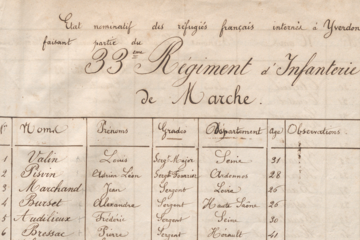 Etat nominatif des réfugiés français internés à Yverdon
faisant partie du
33ème Régiment d'Infanterie
de Marche.
No Noms Prénoms Grades Département Age Observations
1 Valin Louis Sergt Major Seine 31
2 Pisvin Adrien Léon Sergt Fourrier Ardennes 28
3 Marchand Jean Sergent 26
4 Bursot Alexandre Sergent Haute Saône 26
5 Audilieux Frédéric Sergent Seine 30
6 Bressac Pierre Sergent Hérault 41